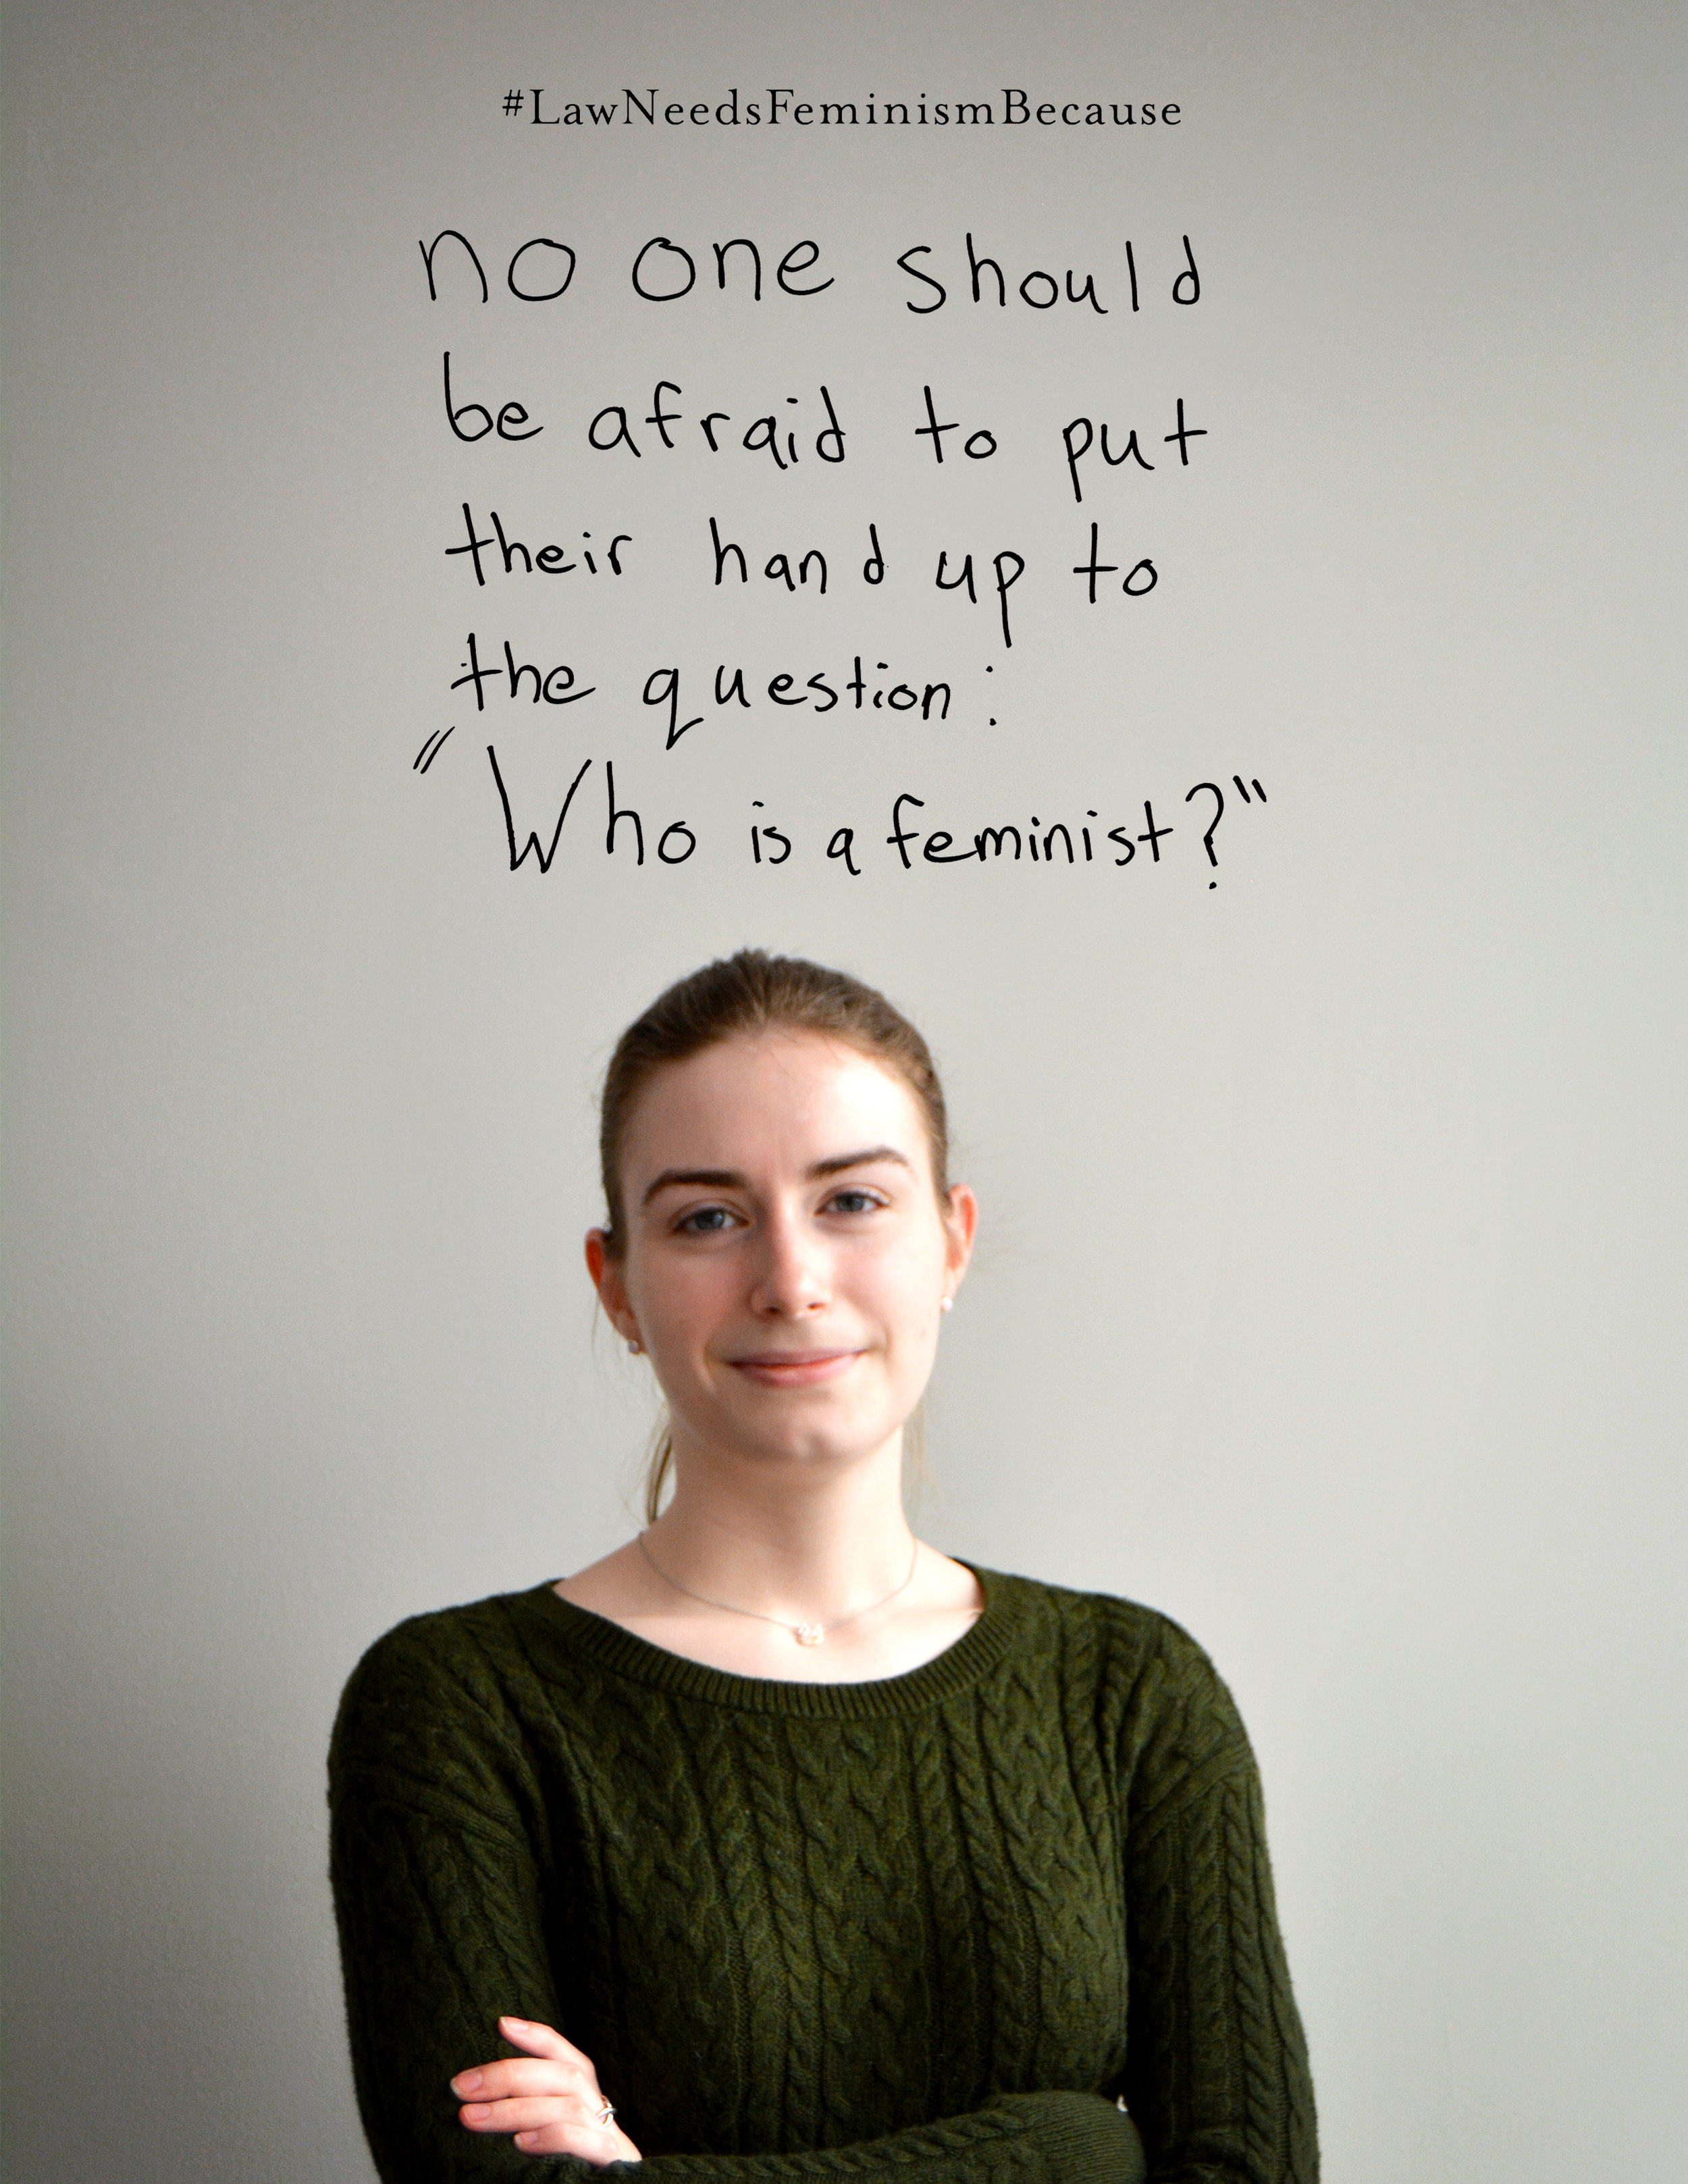 #LawNeedsFeminismBecause
no one should
be afraid to put
their hand up to
the question:
"Who is a feminist?"